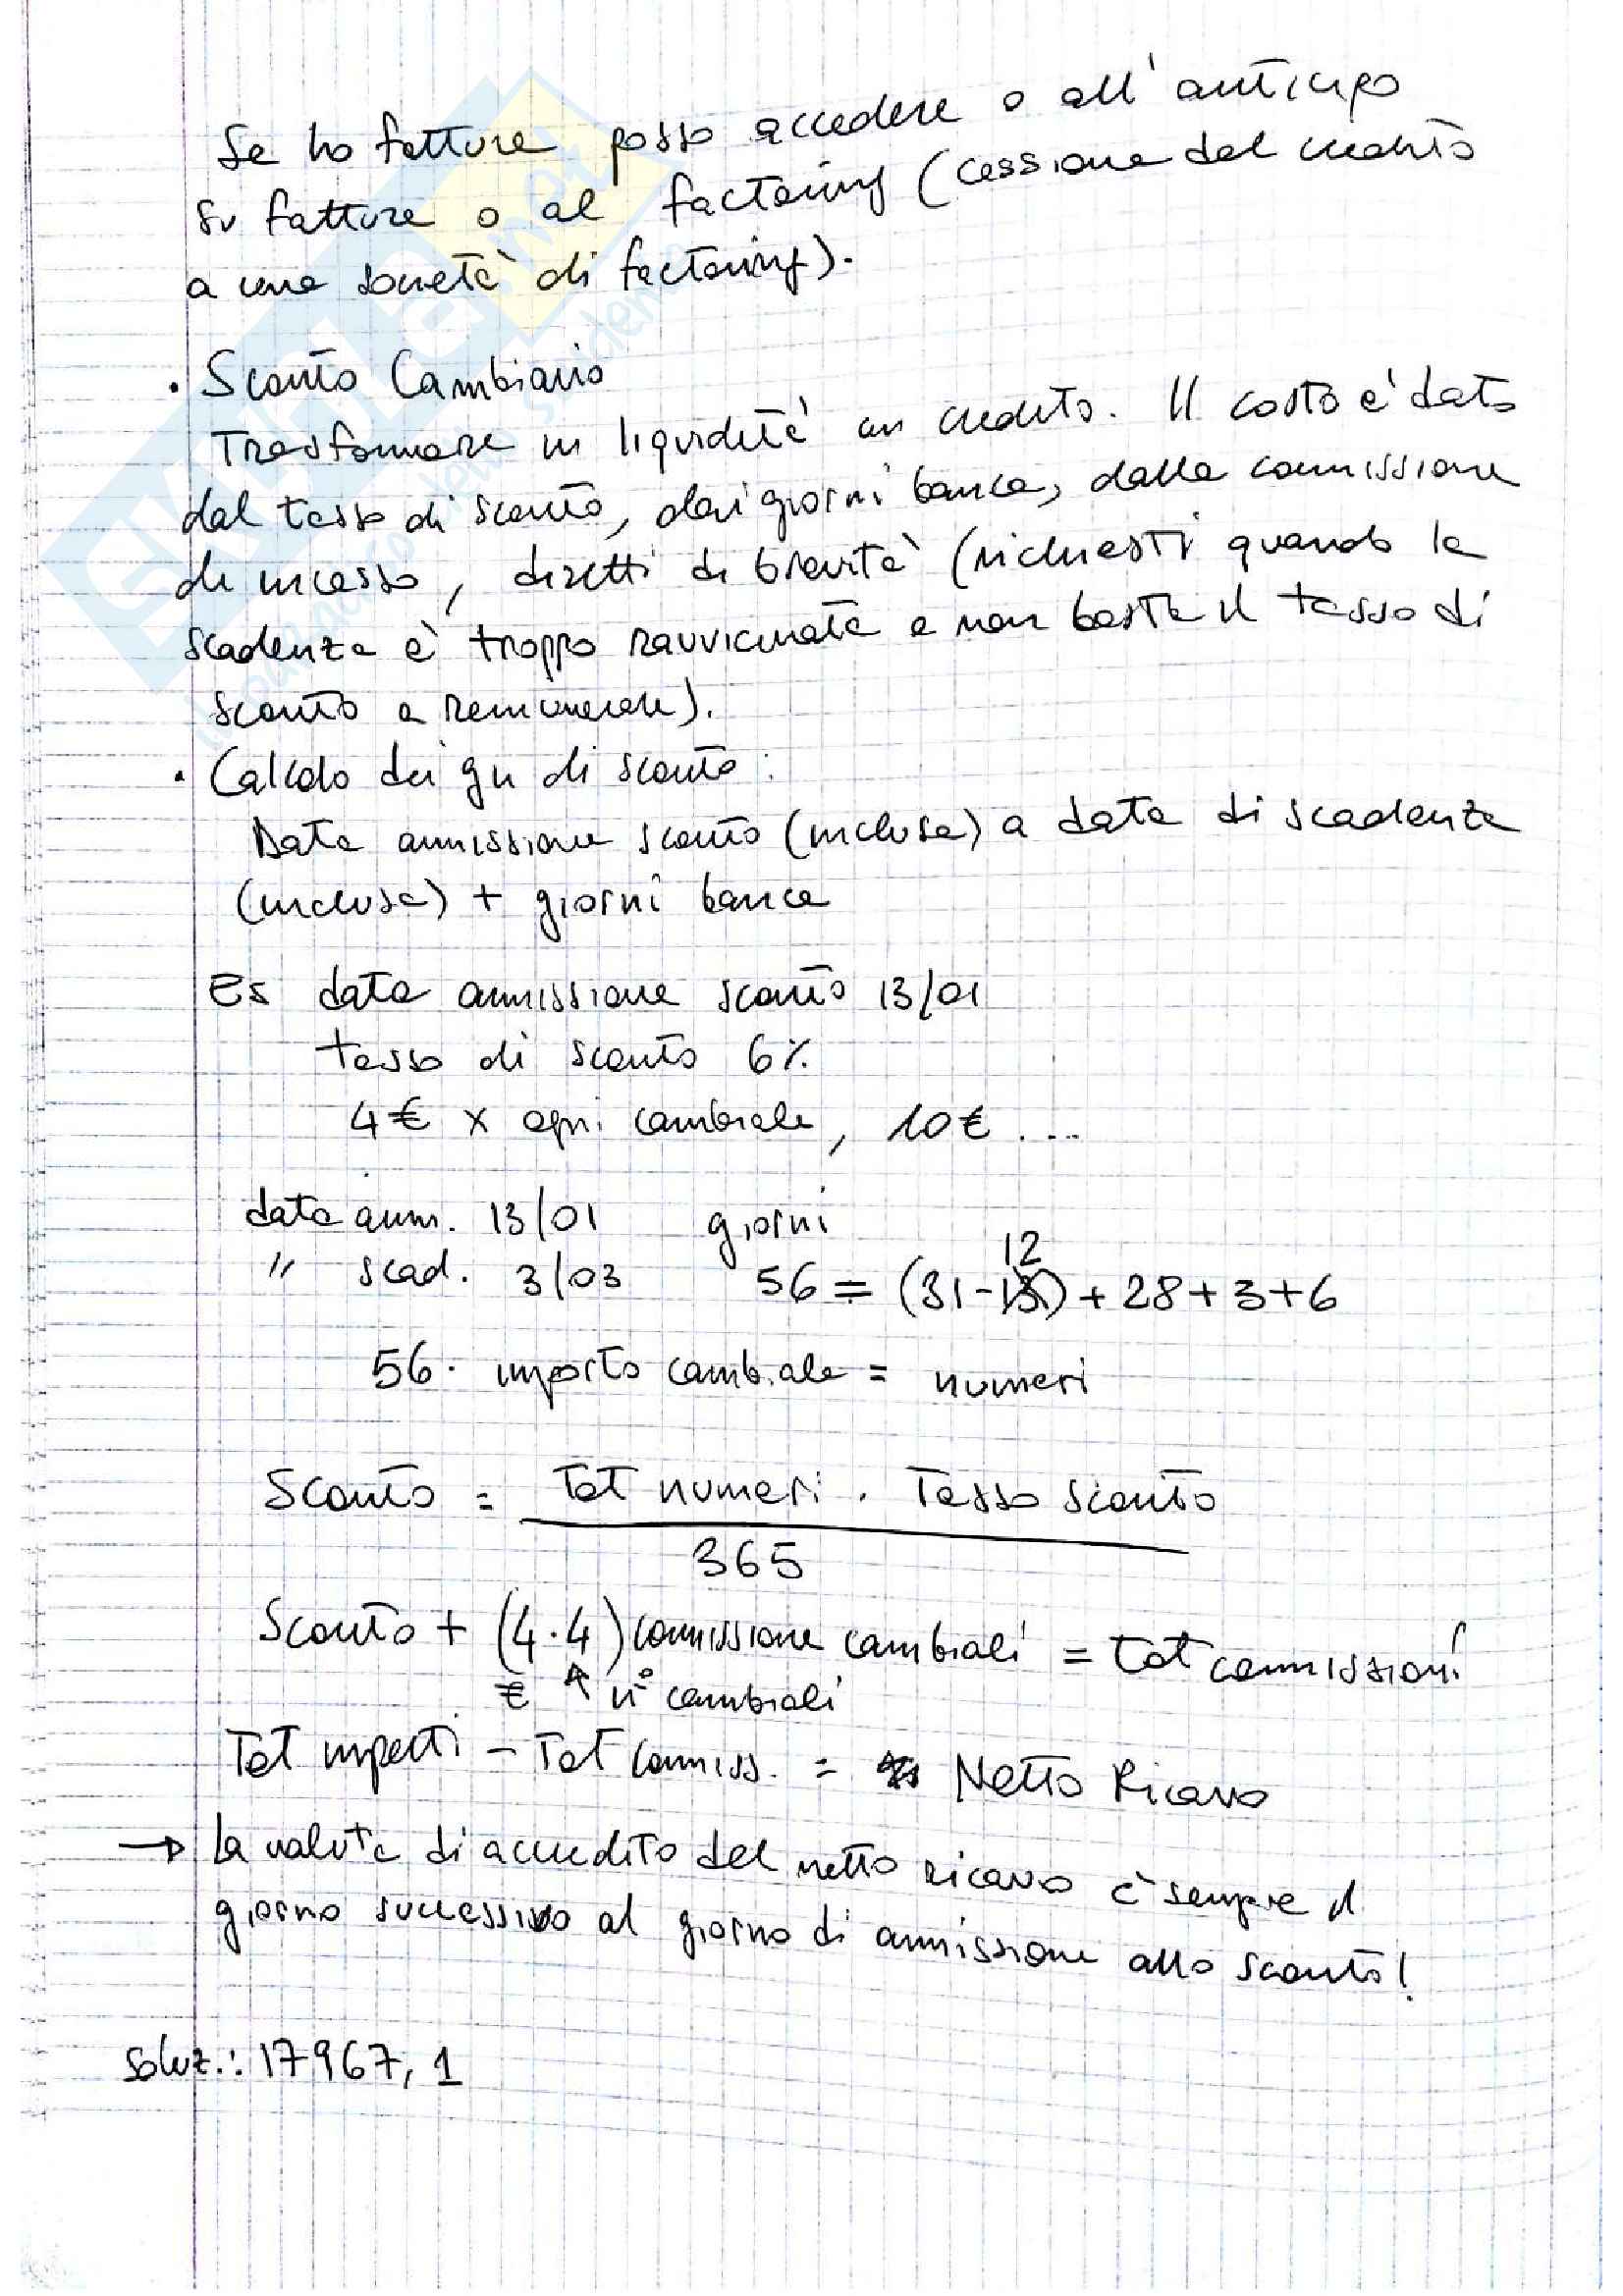 Se ho fatture posso accedere o all'anticipo
su fatture o al factoring (cessione del credito
a una società di factoring).
• Sconto Cambiario
Trasformare in liquidità un credito. Il costo è dato
dal tasso di sconto, dai giorni banca, dalla commissione
di incasso, diritti di brevità (richiesti quando la
scadenza è troppo ravvicinata e non basta il tasso di
sconto a remunerare).
• Calcolo dei gg di sconto:
Data ammissione sconto (inclusa) a data di scadenza
(inclusa) + giorni banca
Es data ammissione sconto 13/01
tasso di sconto 6%
4€ x ogni cambiale, 10€ ....
data amm. 13/01 giorni
12
" scad. 3/03 56 = (31-13) + 28+3+6
56 · importo cambiale = numeri
Sconto = Tot numeri · Tasso sconto
365
Sconto + (4·4) commissione cambiali = tot commissioni
€ ↑ n° cambiali
Tot importi - Tot commiss. = Netto Ricavo
→ La valuta di accredito del netto ricavo è sempre il
giorno successivo al giorno di ammissione allo sconto!
soluz.: 17967,1
SKUOLA.net